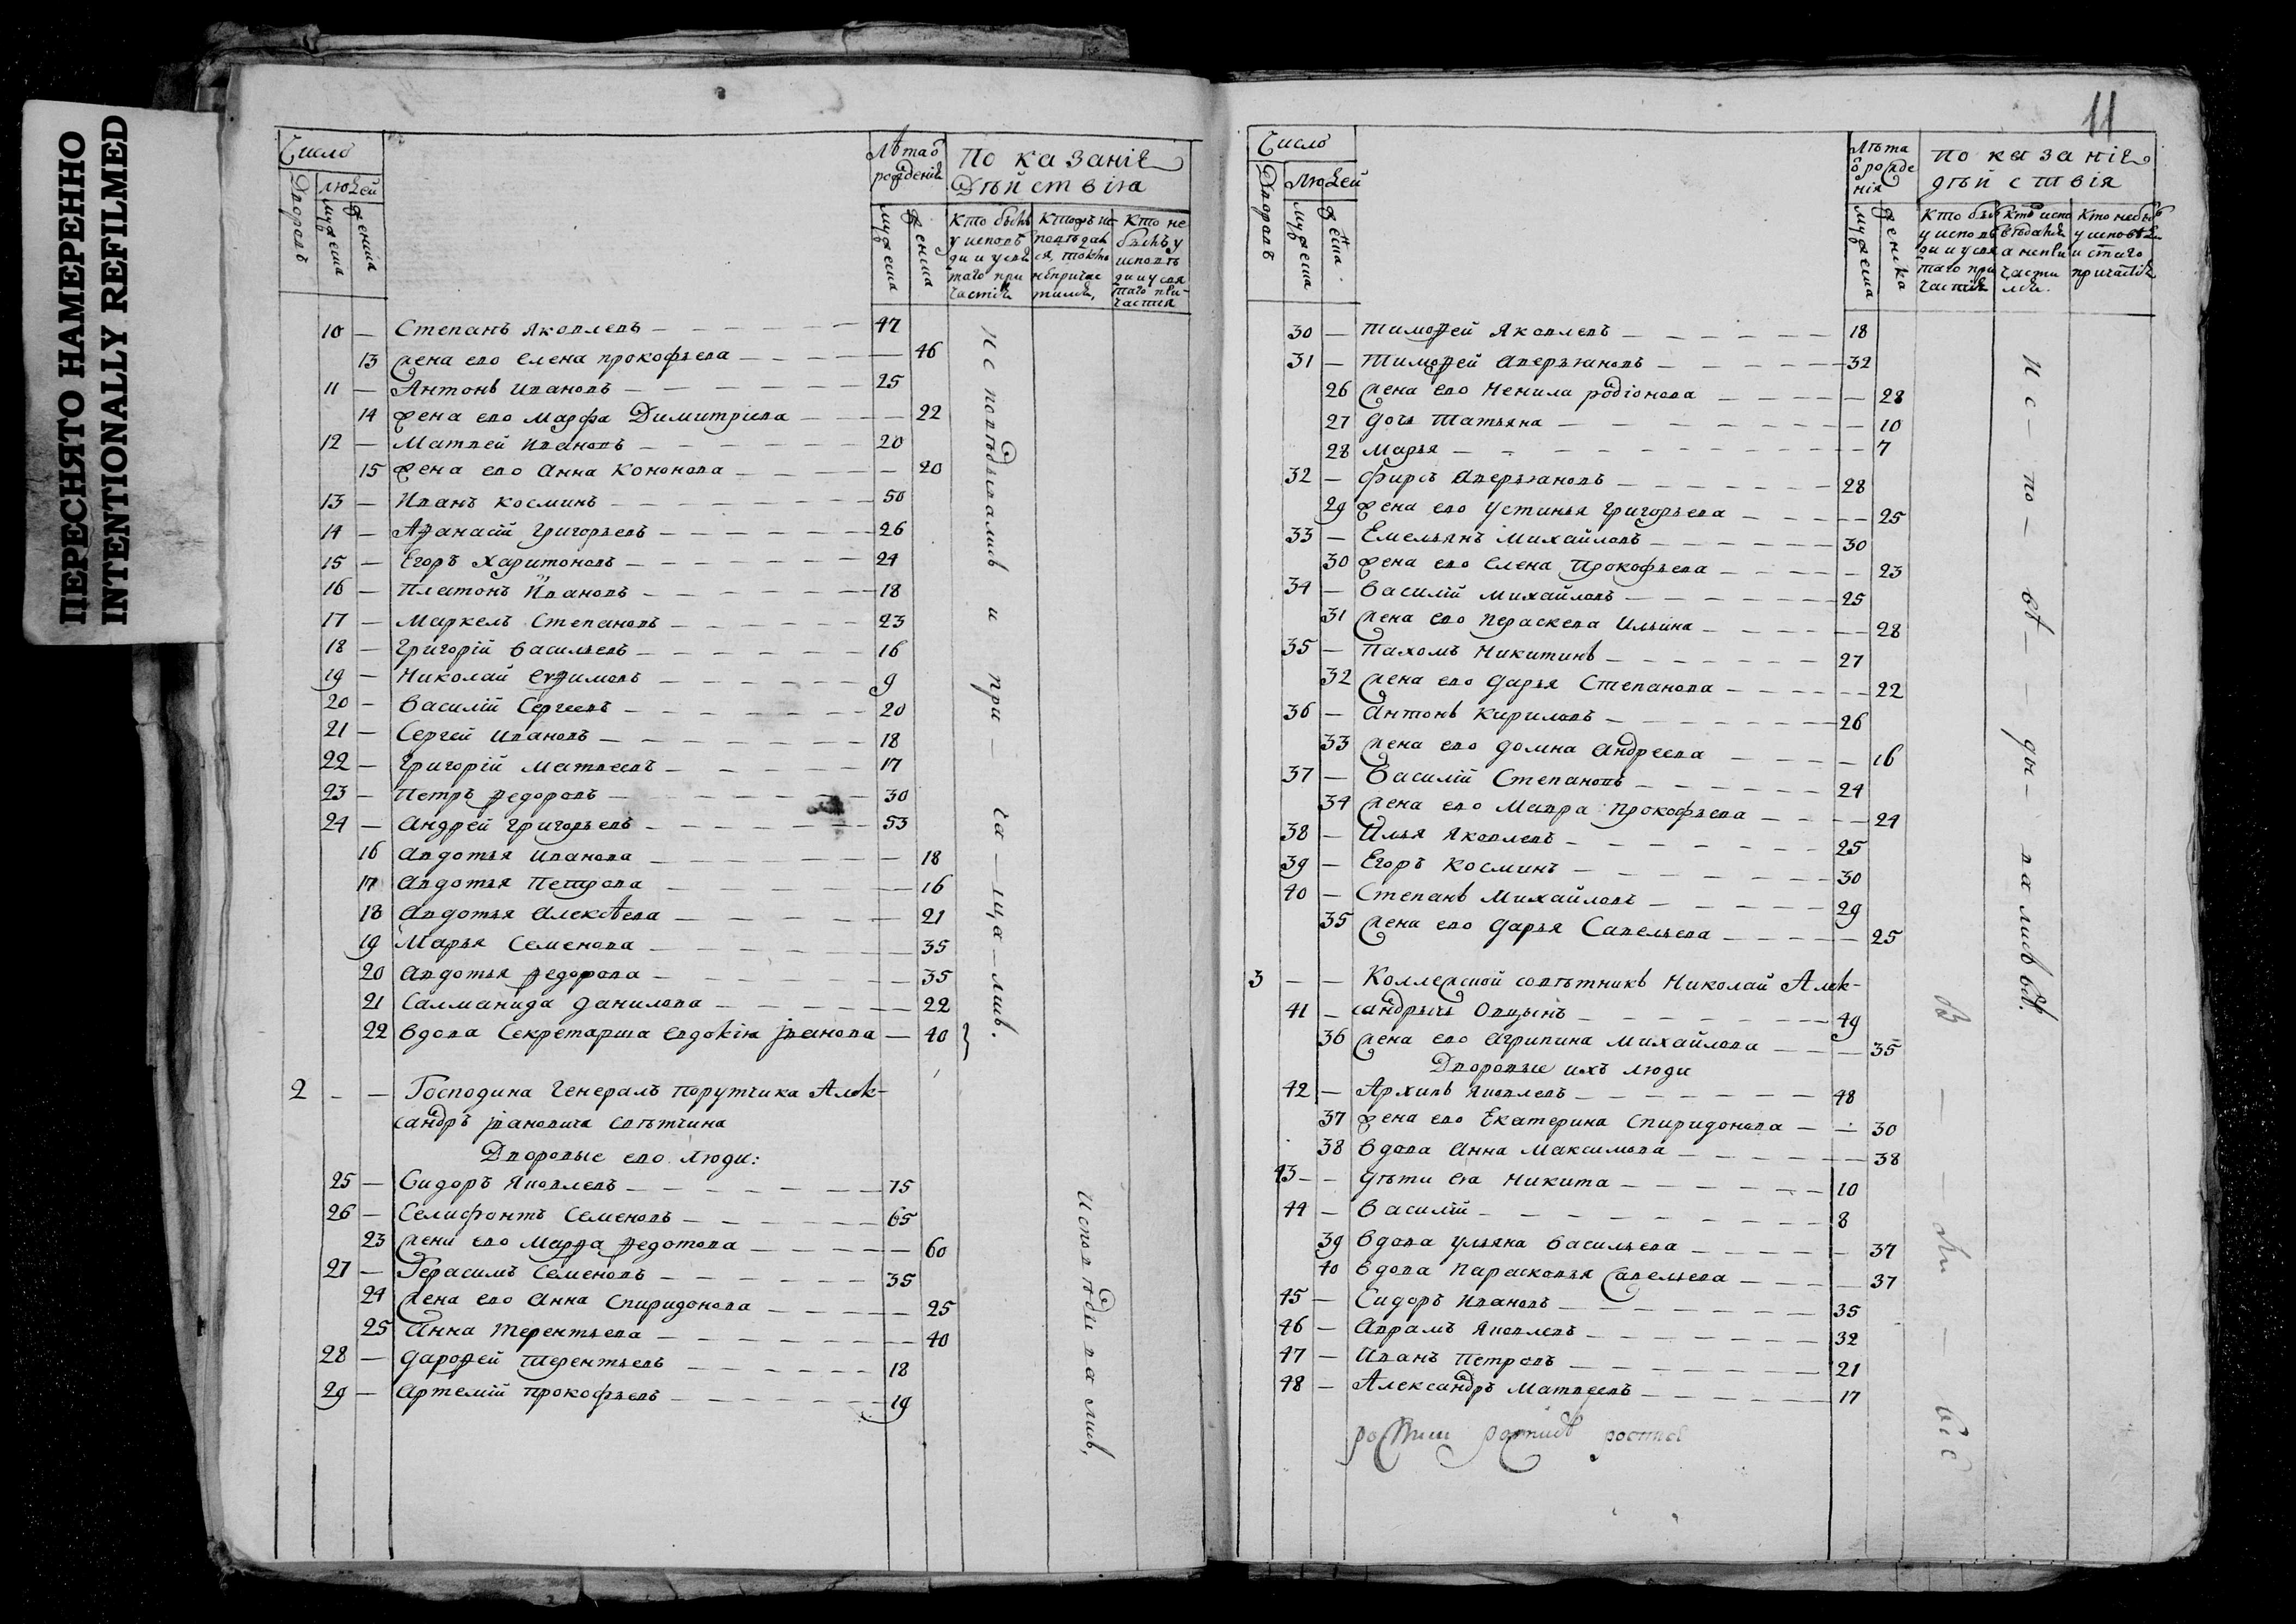 ПЕРЕСНЯТО НАМЕРЕННО
INTENTIONALLY REFILMED
Число
Лѣта ѿ рожденія
Показаніе
Дѣйствія
Дворовъ
людей
мужеска
женска
мужеска
женска
Кто былъ у исповѣди и у святаго причастія
Кто не былъ у исповѣди и у святаго причастия
10 — Степанъ Яковлевъ — 47
13 жена ево Елена прокофьева — 46
11 — Антонъ Ивановъ — 25
14 жена ево Марфа Димитріева — 22
12 — Матвей Ивановъ — 20
15 жена ево Анна Кононова — 20
13 — Иванъ Косминъ — 50
14 — Аѳанасій Григорьевъ — 26
15 — Егоръ Харитоновъ — 24
16 — Платонъ Ивановъ — 18
17 — Маркелъ Степановъ — 23
18 — Григорій Васильевъ — 16
19 — Николай Еѳимовъ — 9
20 — Василій Сергеевъ — 20
21 — Сергей Ивановъ — 18
22 — Григорій Матвеевъ — 17
23 — Петръ Ѳедоровъ — 30
24 — Андрей Григорьевъ — 53
16 Авдотья Иванова — 18
17 Авдотья Петрова — 16
18 Авдотья Алексѣева — 21
19 Марья Семенова — 35
20 Авдотья Ѳедорова — 35
21 Салманида Данилова — 22
22 вдова Секретарша Евдокія Іванова — 40
исповѣдывались и при — ча — ща — лись.
2 — — Господина Генералъ Порутчика Алек-
сандръ Івановича Свѣтчина
Дворовые ево люди:
25 — Сидоръ Яковлевъ — 75
26 — Селифонтъ Семеновъ — 65
23 жена ево Марѳа Ѳедотова — 60
27 — Герасимъ Семеновъ — 35
24 жена ево Анна Спиридонова — 25
25 Анна Терентьева — 40
28 — Дароѳей Терентьевъ — 18
29 — Артемій Прокофьевъ — 19
Исповѣдивались,
11
Число
Лѣта ѿ рожденія
показаніе
дѣйствія
Дворовъ
Людей
мужеска
женска
мужеска
женска
Кто былъ у исповѣди и у святаго причастія
Кто исповѣдался а непричастился.
Кто небылъ у исповѣди и стаго причастія
30 — Тимоѳей Яковлевъ — 18
31 — Тимоѳей Аверьяновъ — 32
26 жена ево Ненила родіонова — 28
27 дочь Татьяна — 10
28 Марья — 7
32 — Фирсъ Аверьяновъ — 28
29 жена ево Устинья Григорьева — 25
33 — Емельянъ Михайловъ — 30
30 жена ево Елена Прокофьева — 23
34 — Василій Михайловъ — 25
31 жена ево Пераскева Ильина — 28
35 — Пахомъ Никитинъ — 27
32 жена ево Дарья Степанова — 22
36 — Антонъ Кириловъ — 26
33 жена ево Домна Андреева — 16
37 — Василій Степановъ — 24
34 жена ево Мавра Прокофьева — 24
38 — Илья Яковлевъ — 25
39 — Егоръ Косминъ — 30
40 — Степанъ Михайловъ — 29
35 жена ево Дарья Савельева — 25
3 — — Коллежской совѣтникъ Николай Алек-
41 — сандрычь Овцынъ — 49
36 жена ево Агрипина Михайлова — 35
Дворовые ихъ люди
42 — Архипъ Яковлевъ — 48
37 жена ево Екатерина Спиридонова — 30
38 вдова Анна Максимова — 38
43 — дѣти ея Никита — 10
44 — Василій — 8
39 вдова Ульяна Васильева — 37
40 вдова Парасковья Савельева — 37
45 — Сидоръ Ивановъ — 35
46 — Аврамъ Яковлевъ — 32
47 — Иванъ Петровъ — 21
48 — Александръ Матвеевъ — 17
ис — по — вѣ — ды — вались